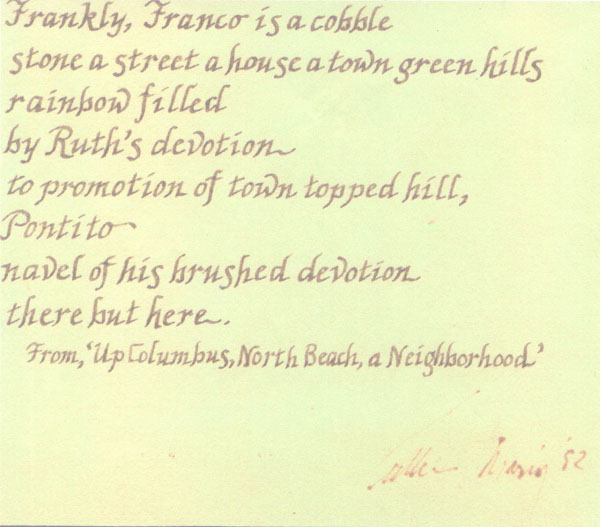 Frankly, Franco is a cobble
stone a street a house a town green hills
rainbow filled
by Ruth's devotion
to promotion of town topped hill,
Pontito
navel of his brushed devotion
there but here.
From, 'Up Columbus, North Beach, a Neighborhood'
'82